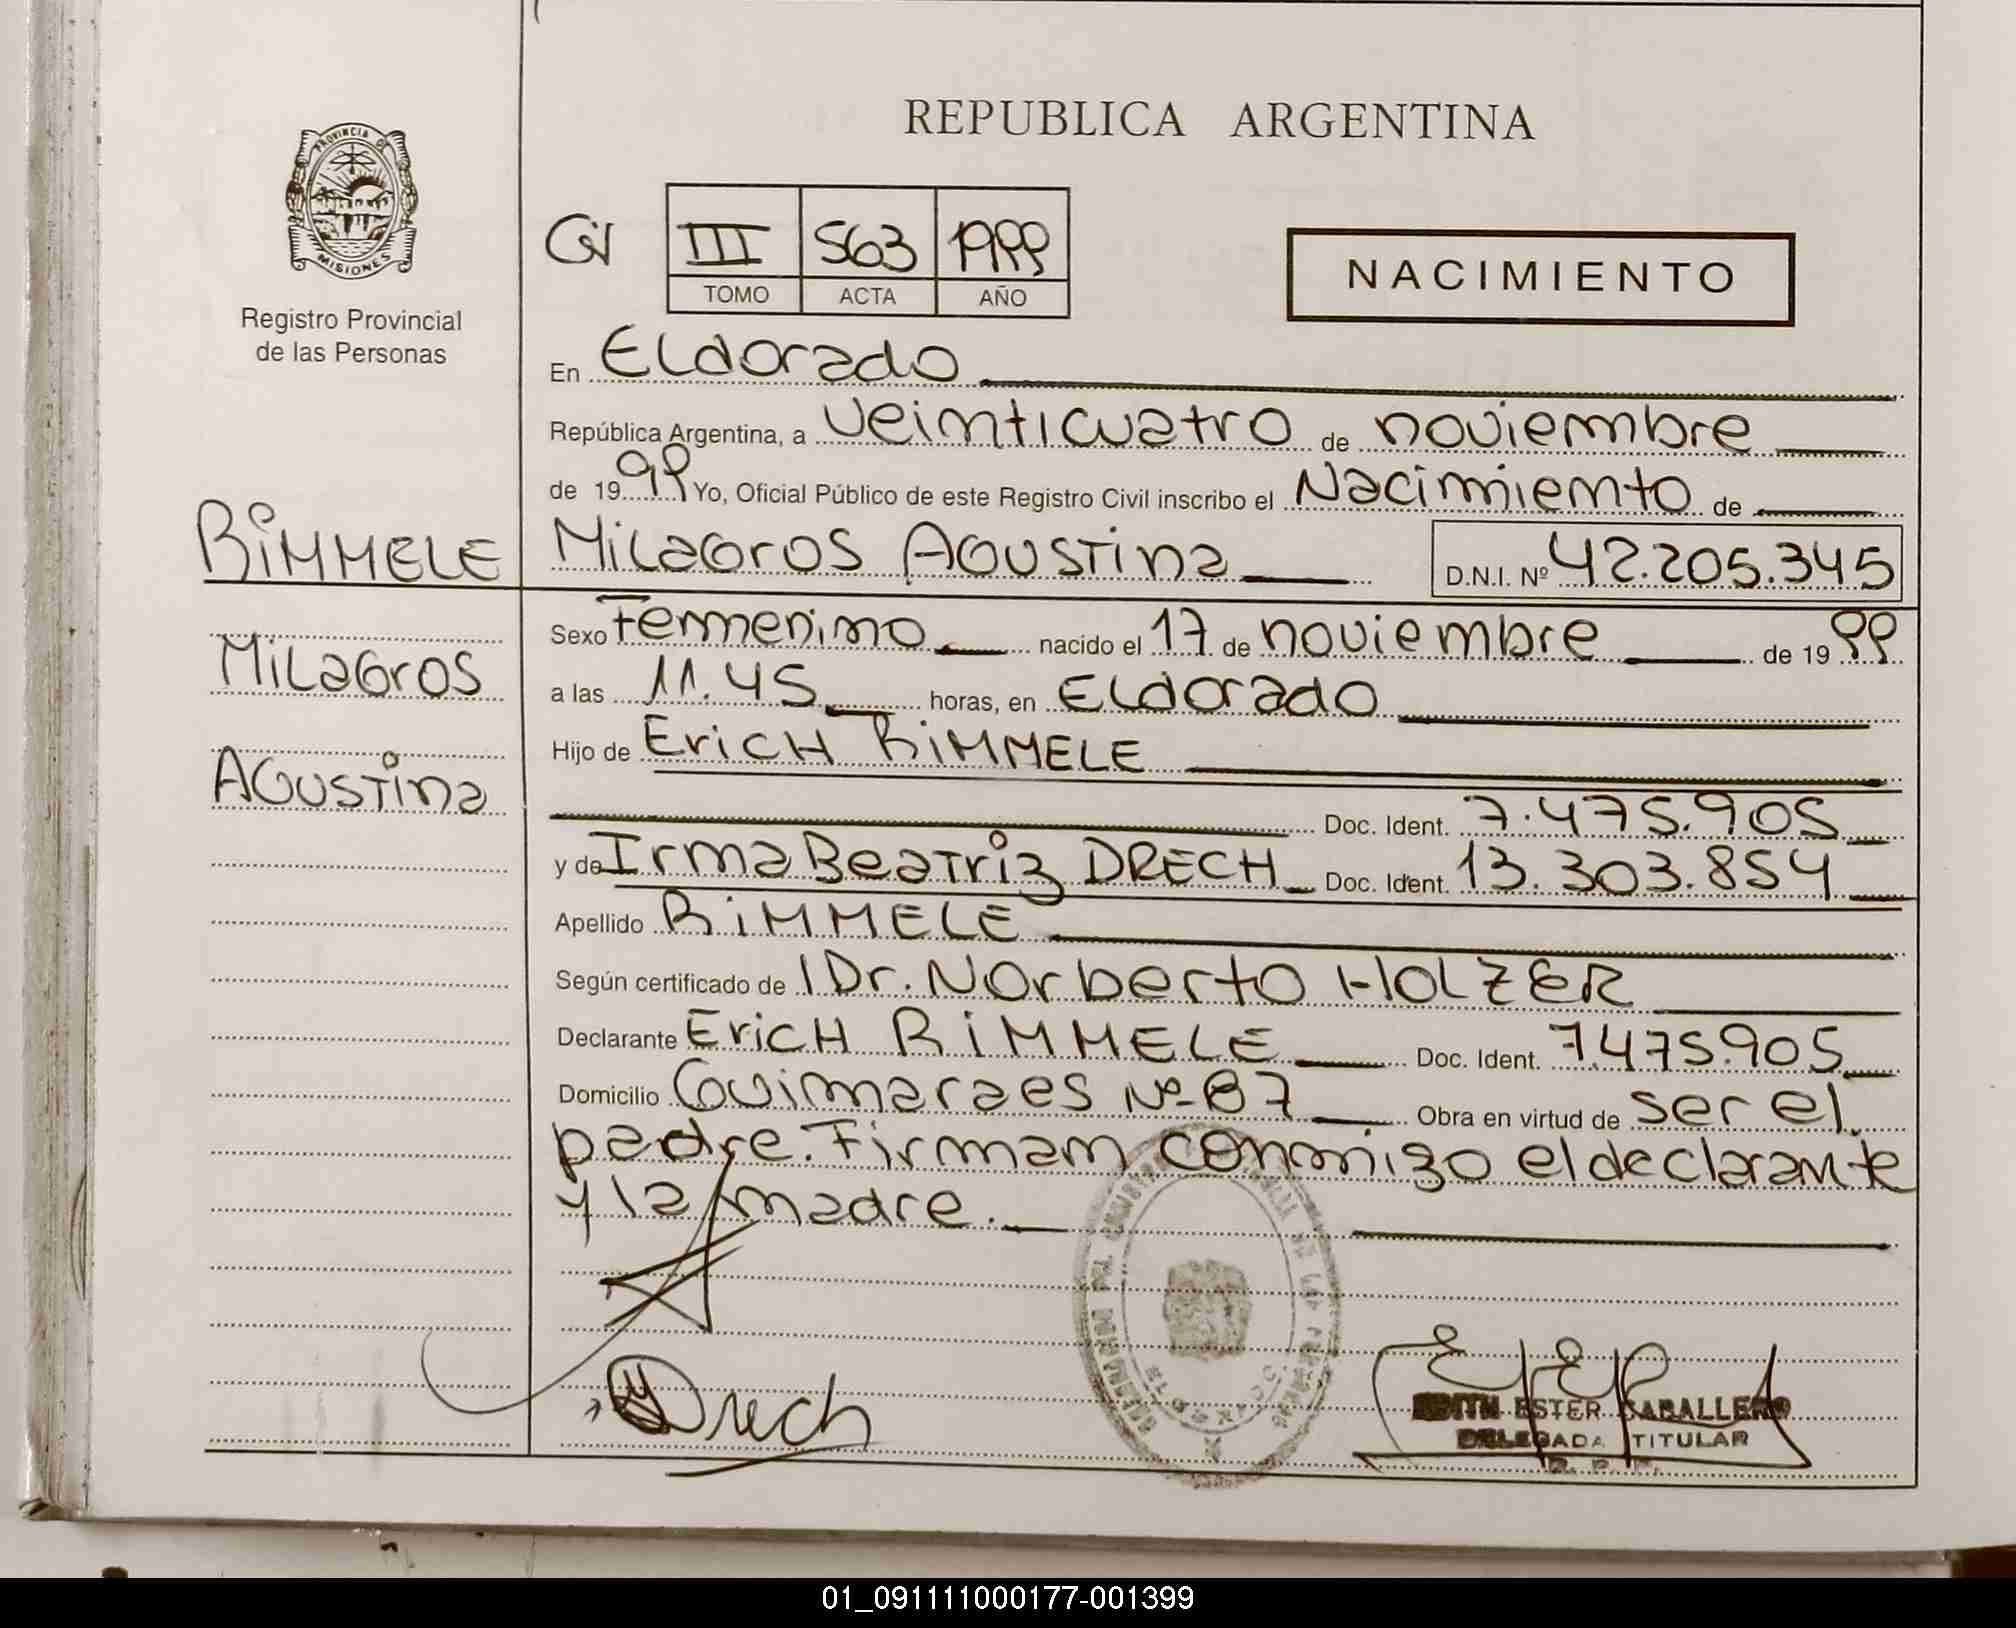 REPUBLICA ARGENTINA
PROVINCIA DE
MISIONES
Registro Provincial
de las Personas
III 563 1999
TOMO ACTA AÑO
NACIMIENTO
En Eldorado
República Argentina, a veinticuatro de noviembre
de 1999 Yo, Oficial Público de este Registro Civil inscribo el Nacimiento de
RIMMELE Milagros Agustina D.N.I. Nº 42.205.345
Sexo Femenino nacido el 17 de noviembre de 1999
Milagros
a las 11.45 horas, en Eldorado
Hijo de Erich RIMMELE
Agustina
Doc. Ident. 7.475.905
y de Irma Beatriz DRECH Doc. Ident. 13.303.854
Apellido RIMMELE
Según certificado de l Dr. Norberto HOLZER
Declarante Erich RIMMELE Doc. Ident. 7.475.905
Domicilio Guimaraes Nº 87 Obra en virtud de ser el
padre. Firman conmigo el declarante
y la madre.
Drech
EDITH ESTER CABALLERO
DELEGADA TITULAR
R. P. P.
01_091111000177-001399